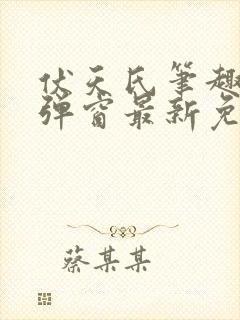 伏天氏笔趣
弹窗最新免
蔡某某